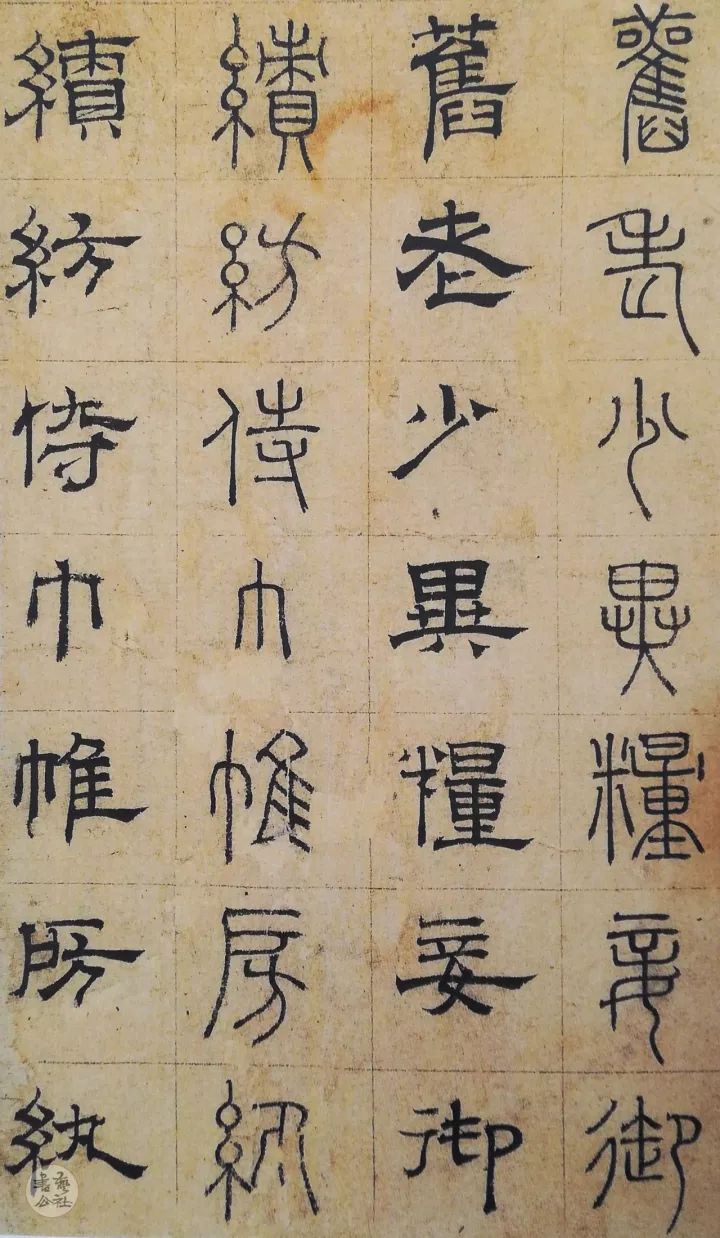 舊老少異糧妾御
舊老少異糧妾御
績紡侍巾帷房紈
績紡侍巾帷房紈
書藝公社